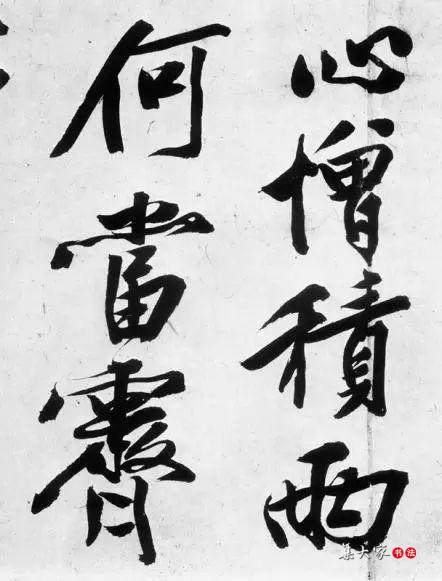 心憎積雨
何當霽
集大家书法